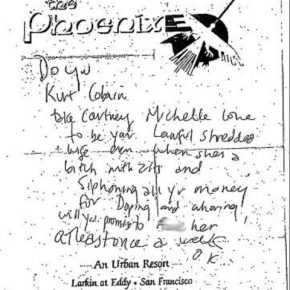 the
Phoenix
Do you
Kurt Cobain
take Courtney Michelle Love
to be your Lawful shredded
wife even when shes a
bitch with zits and
siphoning all yr money
for Doping and whoring
will you promise to her
atleast once a week
O.K
An Urban Resort
Larkin at Eddy • San Francisco